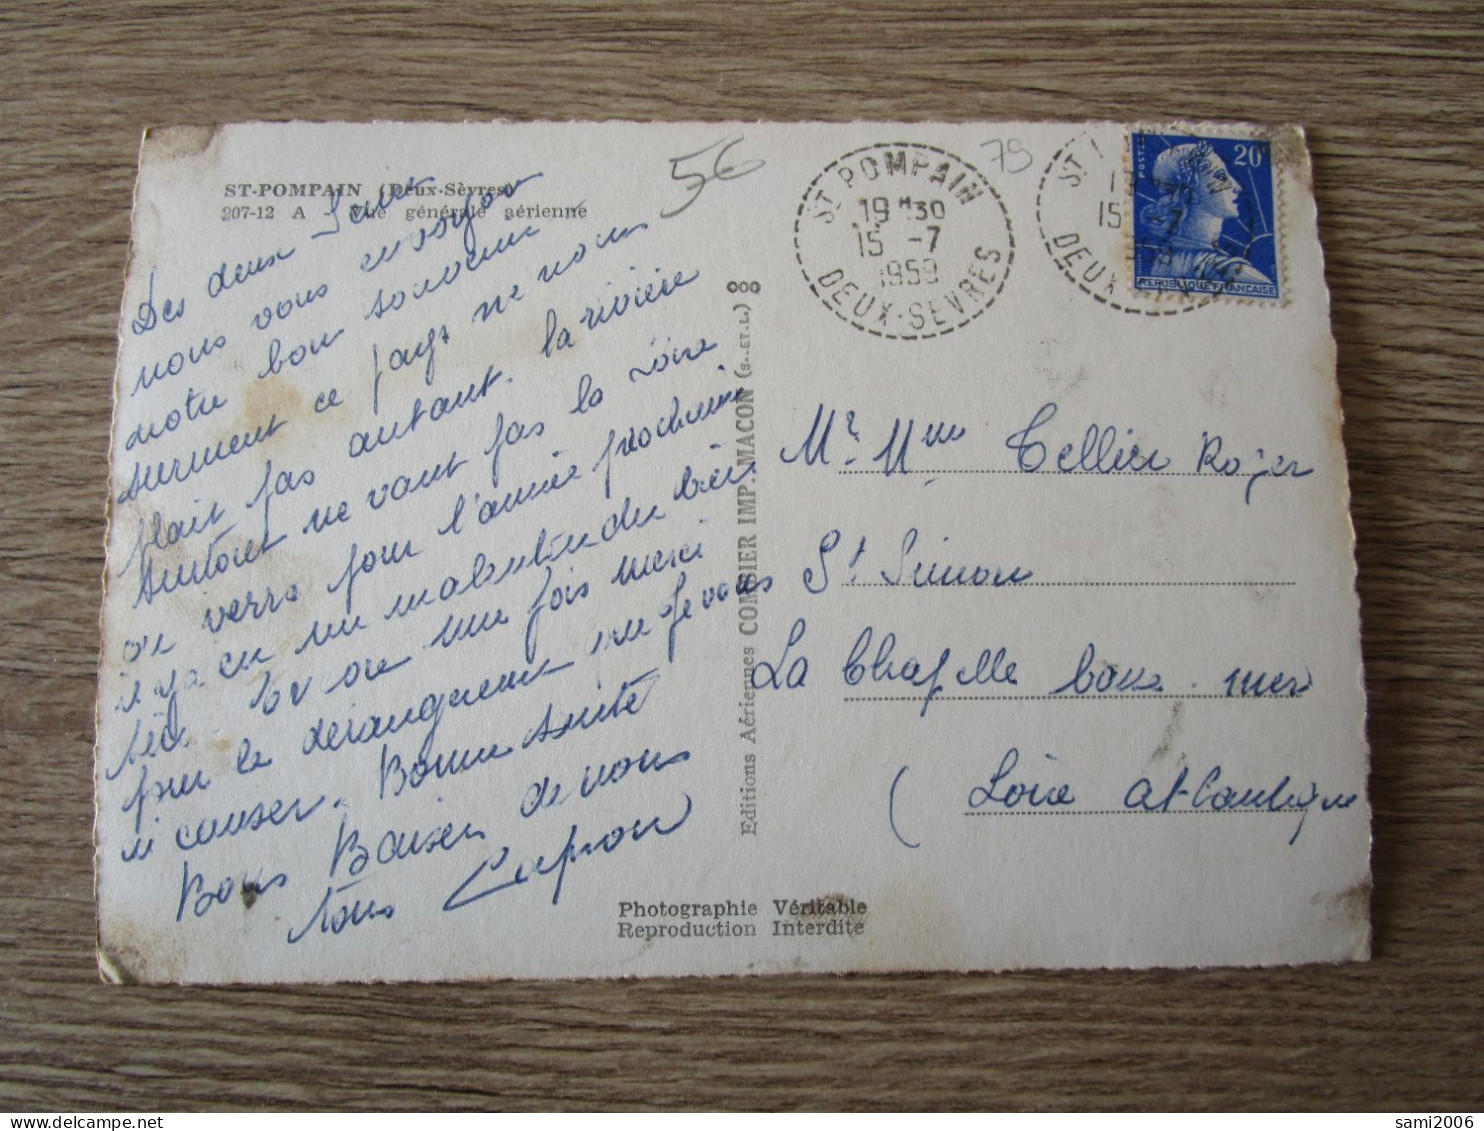 ST-POMPAIN (Deux-Sèvres)
207-12 A - Vue générale aérienne
56
79
ST POMPAIN
19 H30
15 -7
1959
DEUX-SEVRES
ST
15 -7
DEUX
POSTES
20F
REPUBLIQUE FRANCAISE
Des deux
nous vous envoyons
notre bon souvenir
surment ce pays ne nous
plait pas autant. la rivière
surtout ne vaut pas la Loire
on verra pour l'année prochaine
il y a eu un malentendu bien
une fois merci
pour le dérangement que je vous
ai causer. Bonne santé
Bons Baiser de nous
tous Capron
Editions Aériennes COMBIER IMP. MACON (S.-ET-L.)
Mr. Mme Tellier Roger
St Simon
La Chapelle basse mer
(Loire Atlantique
Photographie Véritable
Reproduction Interdite
sami2006